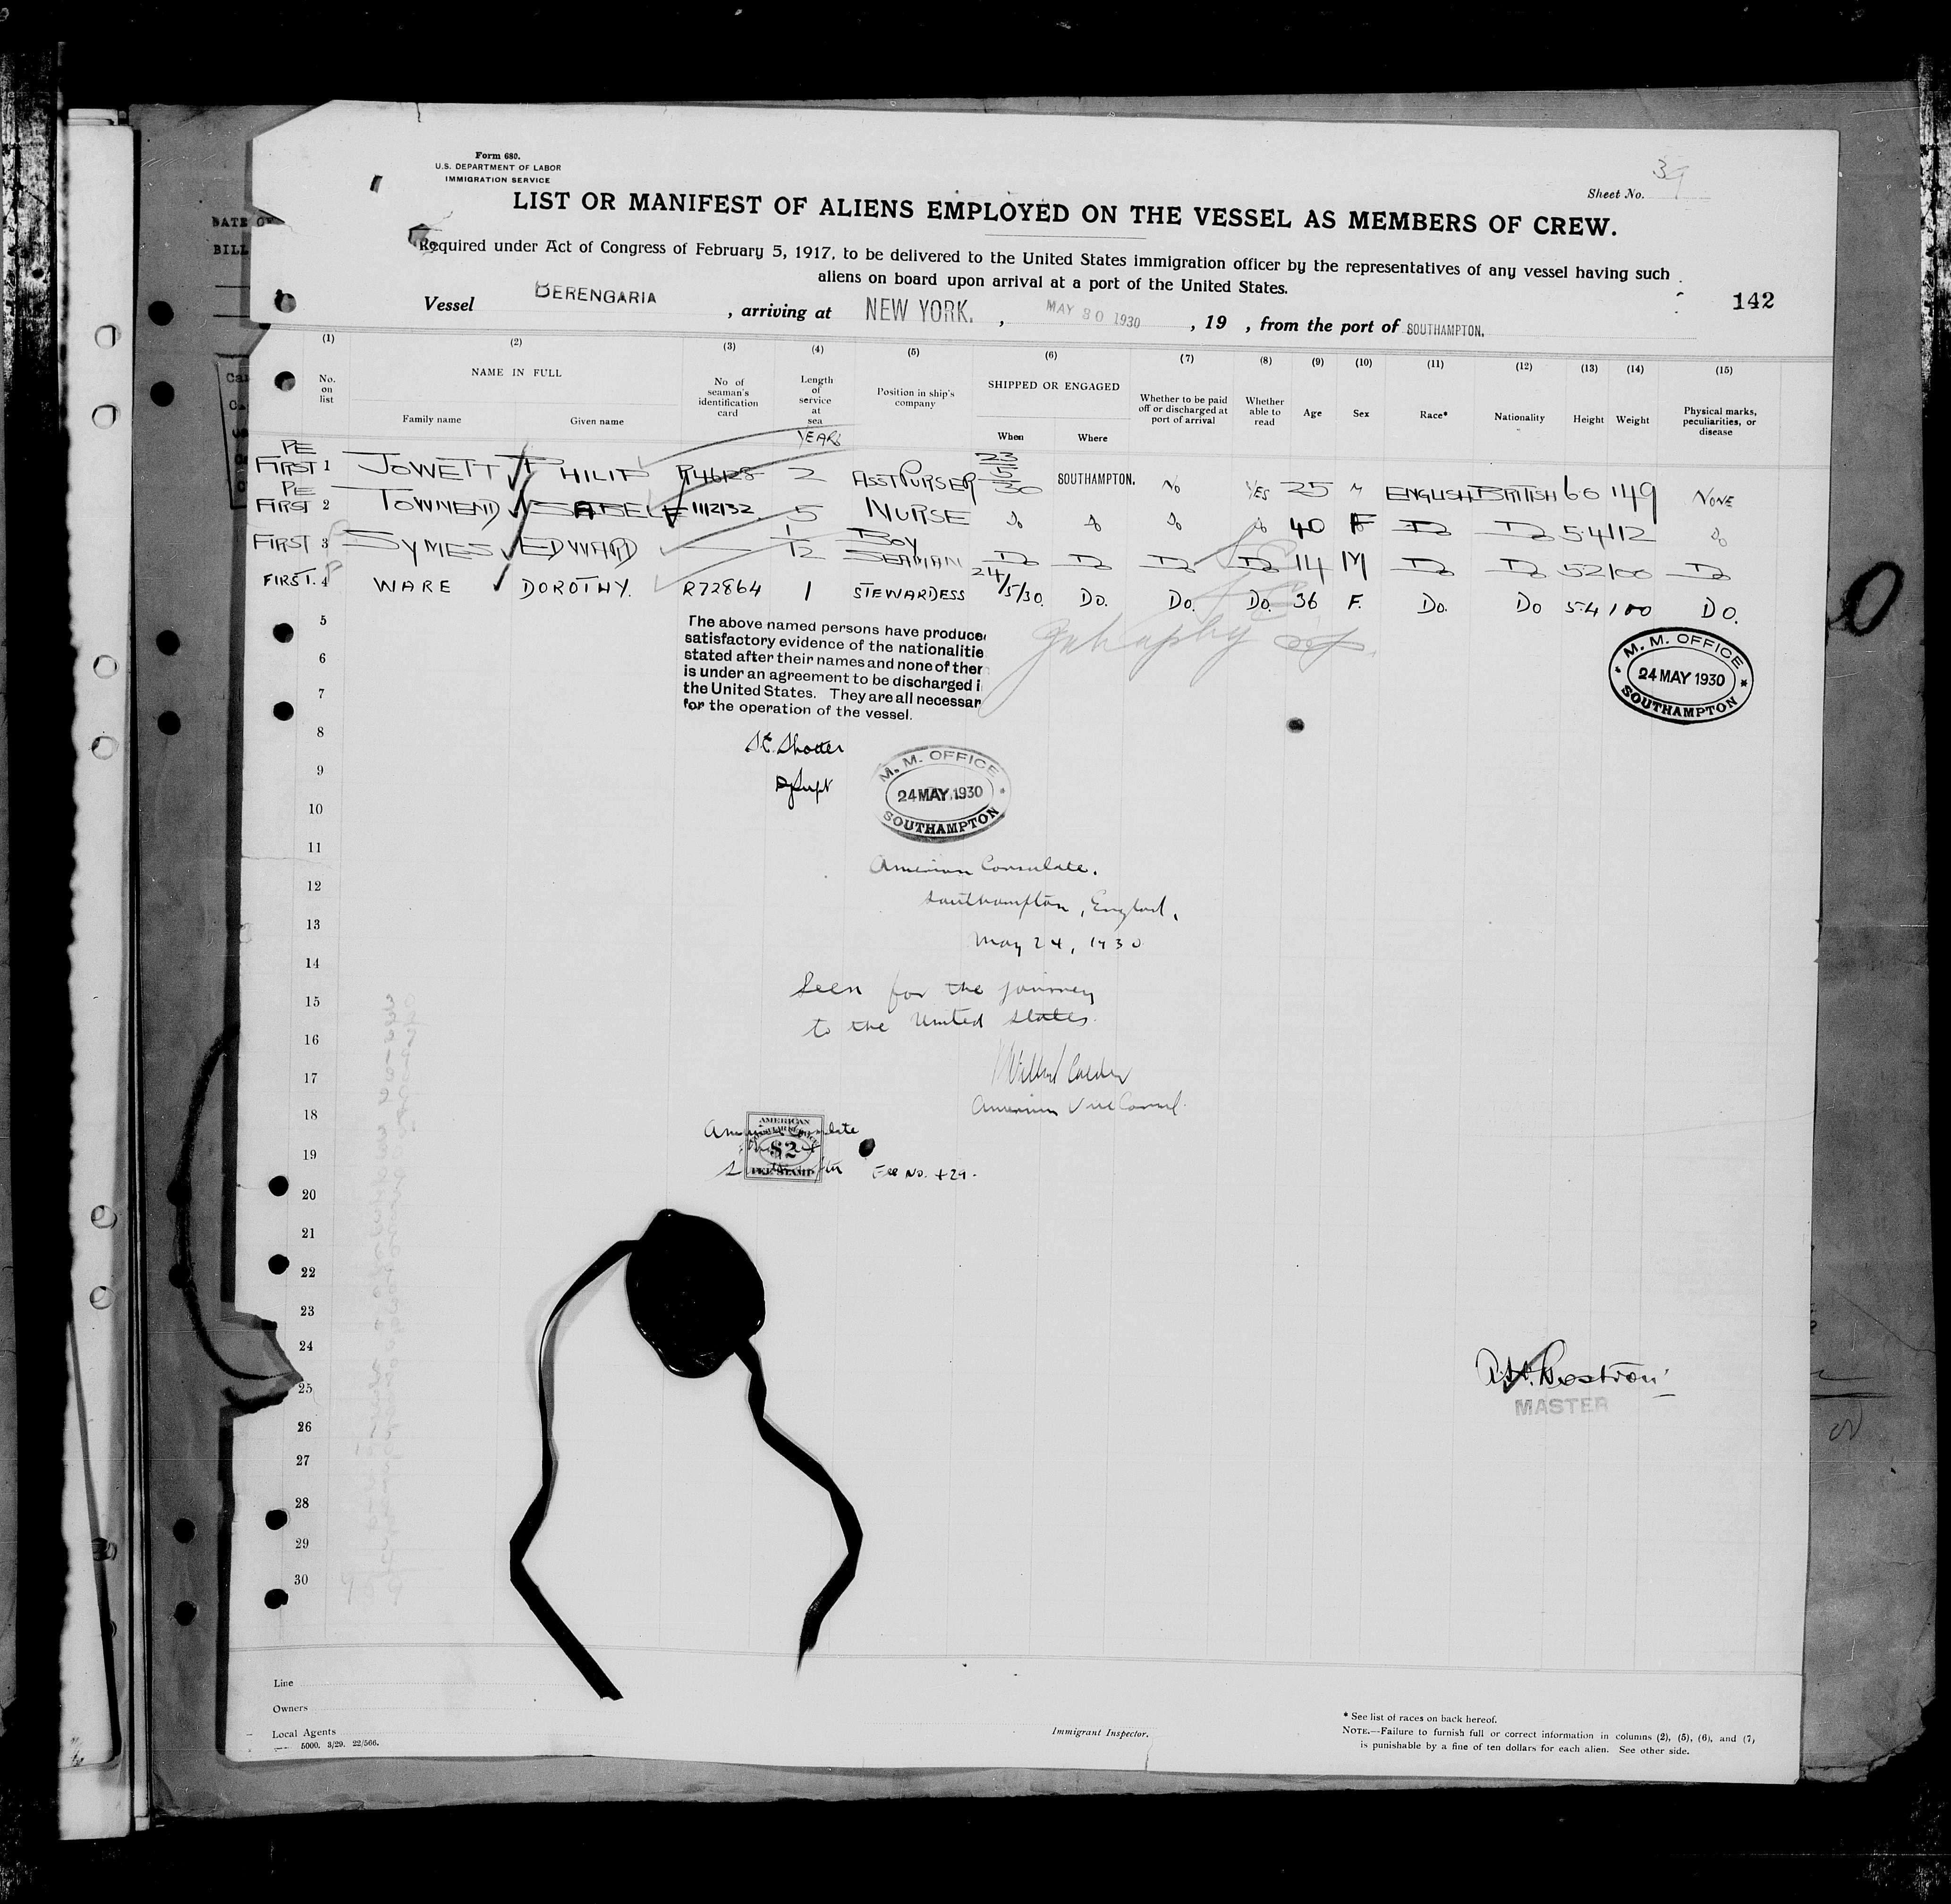 Form 680.
U.S. DEPARTMENT OF LABOR
IMMIGRATION SERVICE
39
Sheet No.
LIST OR MANIFEST OF ALIENS EMPLOYED ON THE VESSEL AS MEMBERS OF CREW.
Required under Act of Congress of February 5, 1917, to be delivered to the United States immigration officer by the representatives of any vessel having such
aliens on board upon arrival at a port of the United States.
142
Vessel BERENGARIA, arriving at NEW YORK., MAY 30 1930, 19 , from the port of SOUTHAMPTON.
(1) (2) (3) (4) (5) (6) (7) (8) (9) (10) (11) (12) (13) (14) (15)
No. on list
NAME IN FULL
Family name Given name
No of seaman's identification card
Length of service at sea
YEARS
Position in ship's company
SHIPPED OR ENGAGED
When Where
Whether to be paid off or discharged at port of arrival
Whether able to read
Age
Sex
Race*
Nationality
Height
Weight
Physical marks, peculiarities, or disease
PE FIRST 1 JOWETT PHILIP R46128 2 ASST PURSER 23/5/30 SOUTHAMPTON. No YES 25 M ENGLISH BRITISH 6 0 149 NONE
PE FIRST 2 TOWNEND ISABELLE 1112132 5 NURSE Do Do Do Do 40 F Do Do 5.4 112 Do
FIRST 3 SYMES EDWARD — 1/12 BOY SEAMAN Do Do Do Do 14 M Do Do 5 2 100 Do
FIRST. 4 WARE DOROTHY. R72864 1 STEWARDESS 24/5/30. Do. Do. Do. 36 F. Do. Do 5.4 100 Do.
5
The above named persons have produce
satisfactory evidence of the nationalitie
stated after their names and none of ther
is under an agreement to be discharged i
the United States. They are all necessar
for the operation of the vessel.
6
7
M. M. OFFICE
24 MAY 1930
SOUTHAMPTON
8
9
M. M. OFFICE
24 MAY 1930
SOUTHAMPTON
10
11
American Consulate.
12
Southampton, England,
13
May 24, 1930
14
15
Seen for the journey
to the United States.
16
17
American Vice Consul.
18
AMERICAN
$2
FEE STAMP
19
Fee No.
20
21
22
23
24
25
A.H. Rostron
MASTER
26
27
28
29
30
Line
Owners
Local Agents
5000. 3/29. 22/566.
Immigrant Inspector.
* See list of races on back hereof.
NOTE.—Failure to furnish full or correct information in columns (2), (5), (6), and (7)
is punishable by a fine of ten dollars for each alien. See other side.
DATE OF
BILL